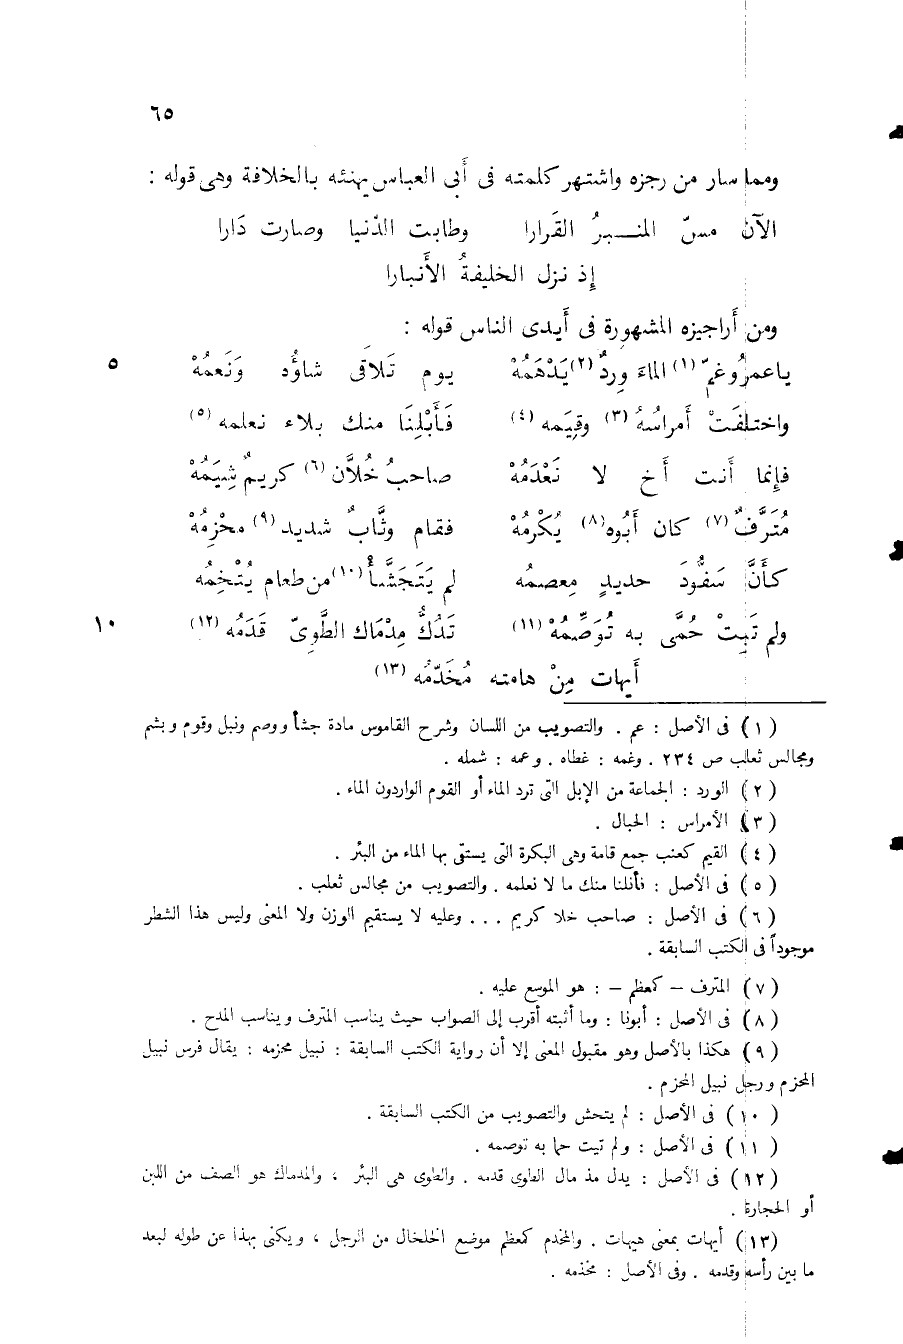 ٦٥
ومما سار من رجزه واشتهر كلمته فى أَبى العباس يهنئه بالخلافة وهى قوله :
الآن مسّ المنـبرُ القَرارا وطابت الدّنيا وصارت دَارا
إذ نزل الخليفةُ الأَنبارا
ومن أَراجيزه المشهورة فى أَيدى الناس قوله :
ياعمرُو غمّ (١) الماءَ وِردٌ (٢) يَدْهَمُهْ يوم تَلاقى شاؤُه وَنَعمُهْ ٥
واختلفَتْ أَمراسُهُ (٣) وقِيَمه (٤) فَأَبْلِنَا منك بلاء نعلمه (٥)
فإنما أَنت أَخ لا نَعْدَمُهْ صاحبُ خُلاَّن (٦) كريمٌ شِيَمُهْ
مُتَرَّفٌ (٧) كان أَبُوه (٨) يُكْرمُهْ فقام وثَّابٌ شديد (٩) محْزِمُهْ
كأَنَّ سَفُّودَ حديدٍ مِعصمُه لم يَتَجَشَّأْ (١٠) من طعام يُتْخِمُه
ولم تَبِتْ حُمَّى به تُوَصِّمُهْ (١١) تَدُكُّ مِدْمَاك الطَّوِىّ قَدَمُه (١٢) ١٠
أَيهات مِنْ هامته مُخَدَّمُه (١٣)
(١) فى الأصل : عم . والتصويب من اللسان وشرح القاموس مادة جشأ ووصم ونبل وقوم وبشم
ومجالس ثعلب ص ٢٣٤ . وغمه : غطاه . وعمه : شمله .
(٢) الورد : الجماعة من الإبل التى ترد الماء أو القوم الواردون الماء .
(٣) الأمراس : الحبال .
(٤) القيم كعنب جمع قامة وهى البكرة التى يستقى بها الماء من البئر .
(٥) فى الأصل : نأنلنا منك ما لا نعلمه . والتصويب من مجالس ثعلب .
(٦) فى الأصل : صاحب خلا كريم . . . وعليه لا يستقيم الوزن ولا المعنى وليس هذا الشطر
موجوداً فى الكتب السابقة .
(٧) المترف – كمعظم – : هو الموسع عليه .
(٨) فى الأصل : أبونا : وما أثبته أقرب إلى الصواب حيث يناسب المترف ويناسب المدح .
(٩) هكذا بالأصل وهو مقبول المعنى إلا أن رواية الكتب السابقة : نبيل محزمه : يقال فرس نبيل
المحزم ورجل نبيل المحزم .
(١٠) فى الأصل : لم يتحش والتصويب من الكتب السابقة .
(١١) فى الأصل : ولم تيت حما به توصمه .
(١٢) فى الأصل : يدل مذ مال الطوى قدمه . والطوى هى البئر ، والمدماك هو الصف من اللبن
أو الحجارة .
(١٣) أيهات بمعنى هيهات . والمخدم كمعظم موضع الخلخال من الرجل ، ويكنى بهذا عن طوله لبعد
ما بين رأسه وقدمه . وفى الأصل : مخذمه .